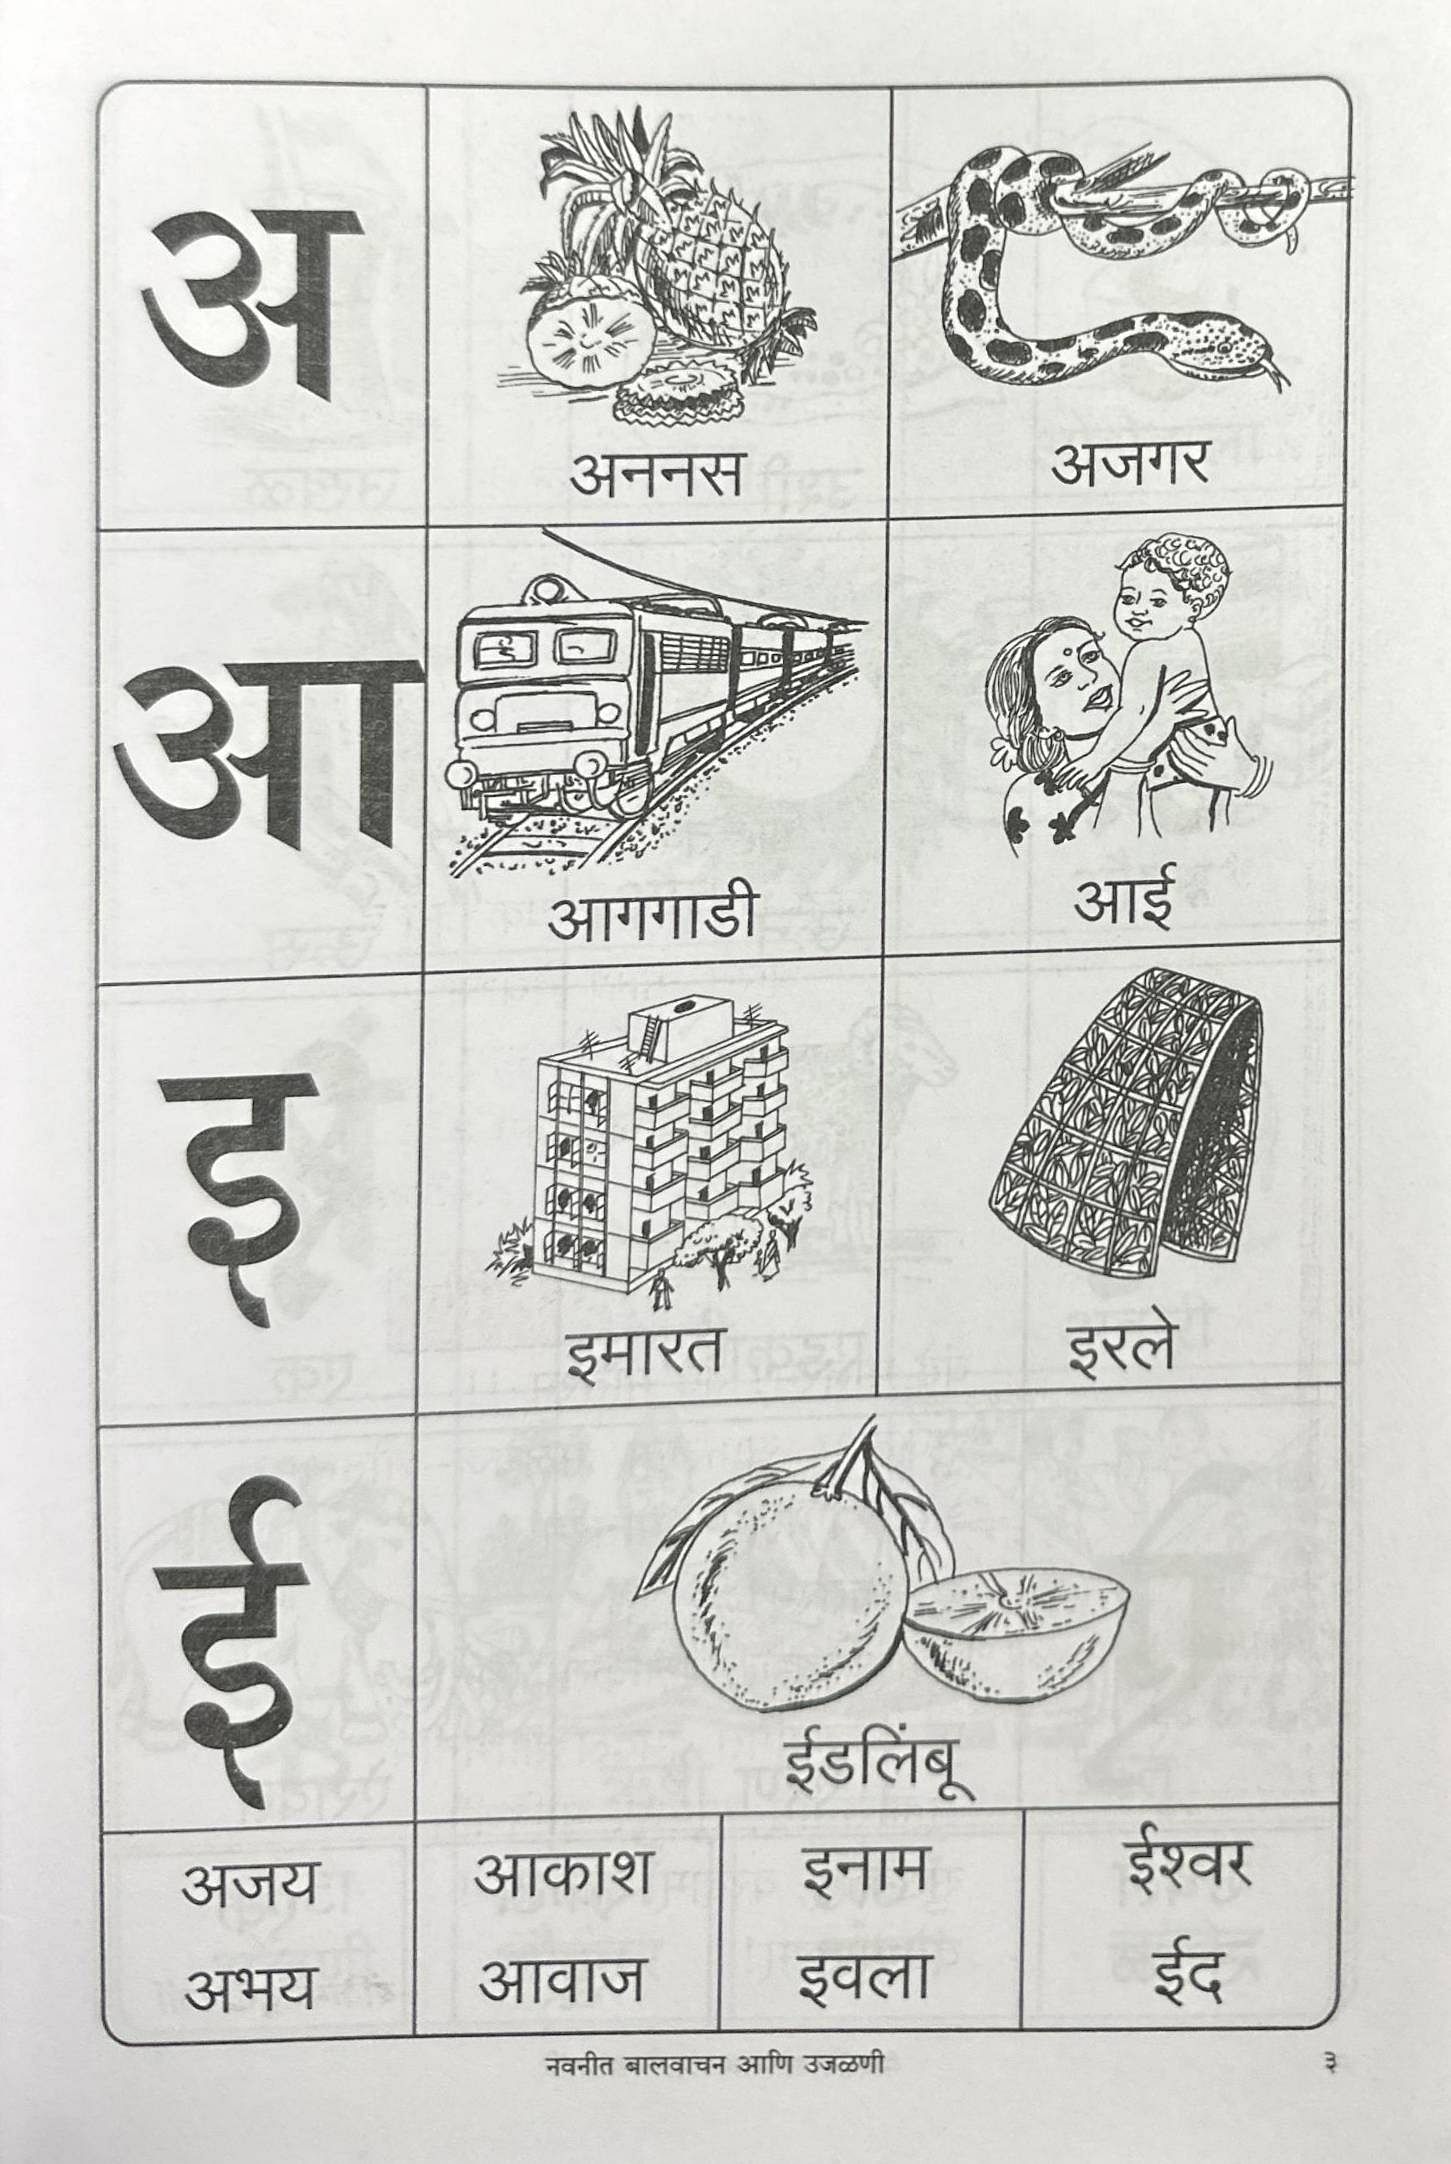 अ
अननस
अजगर
आ
आगगाडी
आई
इ
इमारत
इरले
ई
ईडलिंबू
अजय आकाश इनाम ईश्वर
अभय आवाज इवला ईद
नवनीत बालवाचन आणि उजळणी ३